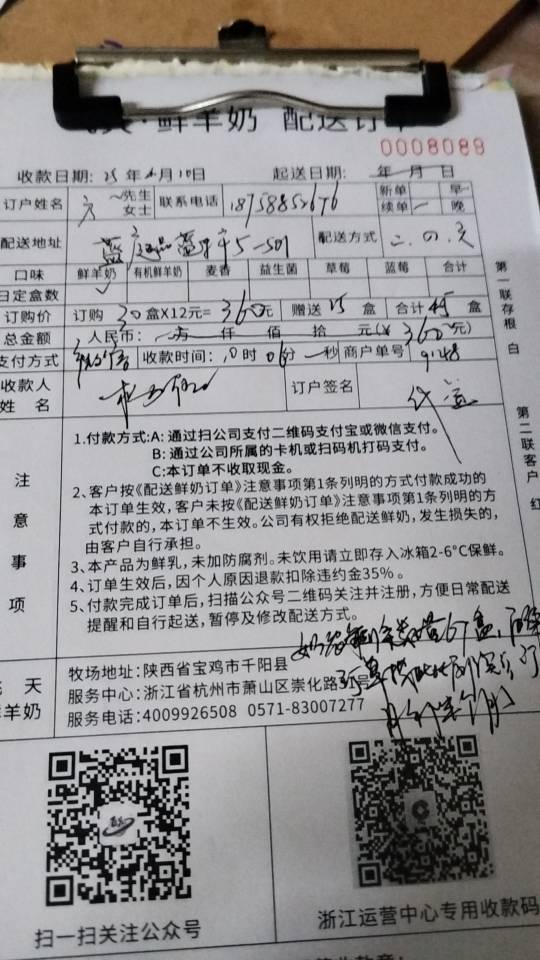 ·鲜羊奶 配送订单
0008089
收款日期: 25年4月10日 起送日期: 年 月 日
订户姓名 先生 女士 联系电话 新单 早
续单 晚
配送地址 5-501 配送方式 二.四.六
口味 鲜羊奶 有机鲜羊奶 麦香 益生菌 草莓 蓝莓 合计
日定盒数
订购价 订购 30盒X12元=360元 赠送15盒 合计45盒
总金额 人民币: 万 仟 佰 拾 元(¥ 360元)
支付方式 收款时间: 10时06分 秒 商户单号 9148
收款人 姓名 订户签名
注意事项
1.付款方式:A: 通过扫公司支付二维码支付宝或微信支付。
B: 通过公司所属的卡机或扫码机打码支付。
C:本订单不收取现金。
2、客户按《配送鲜奶订单》注意事项第1条列明的方式付款成功的
本订单生效,客户未按《配送鲜奶订单》注意事项第1条列明的方
式付款的,本订单不生效。公司有权拒绝配送鲜奶,发生损失的,
由客户自行承担。
3、本产品为鲜乳,未加防腐剂。未饮用请立即存入冰箱2-6°C保鲜。
4、订单生效后,因个人原因退款扣除违约金35%。
5、付款完成订单后,扫描公众号二维码关注并注册,方便日常配送
提醒和自行起送,暂停及修改配送方式。
天
鲜羊奶
牧场地址:陕西省宝鸡市千阳县
服务中心:浙江省杭州市萧山区崇化路
服务电话:4009926508 0571-83007277
第一联存根 白
第二联客户 红
扫一扫关注公众号
浙江运营中心专用收款码